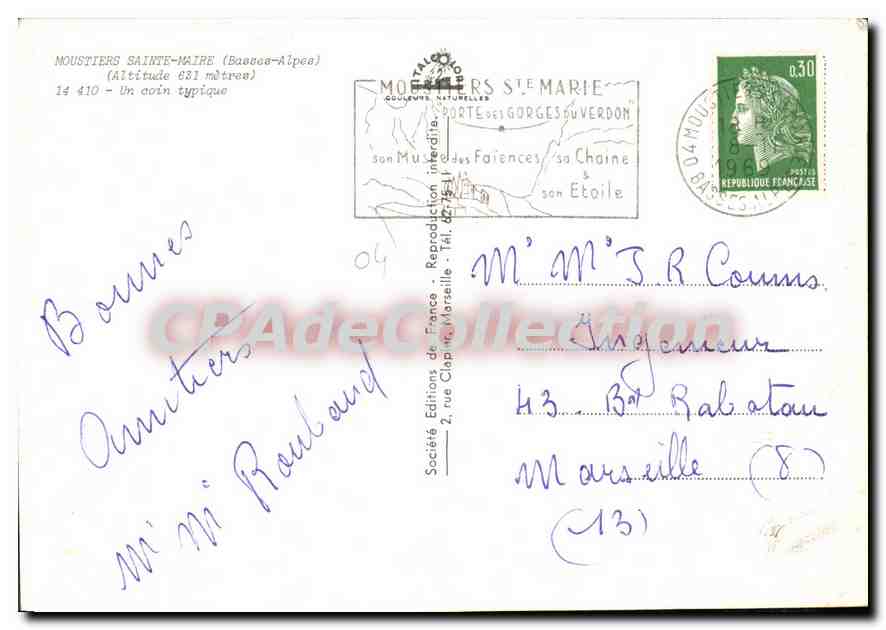 MOUSTIERS SAINTE-MAIRE (Basses-Alpes)
(Altitude 631 mètres)
14 410 - Un coin typique
ITALCOLOR
COULEURS NATURELLES
MOUSTIERS STE MARIE
"PORTE DES GORGES DU VERDON"
son Musée des Faïences sa Chaine
&
son Etoile
04 MOUSTIERS
1969
BASSES-ALPES
0,30
POSTES
REPUBLIQUE FRANÇAISE
04
Bonnes
Amitiés
Mr Mr Roubaud
Société Editions de France - Reproduction interdite.
2, rue Clapier, Marseille - Tél. 62-75-11
Mr Mr J R Coums
Ingenieur
43. Bd Rabatau
Marseille (8)
(13)
CPAdeCollection